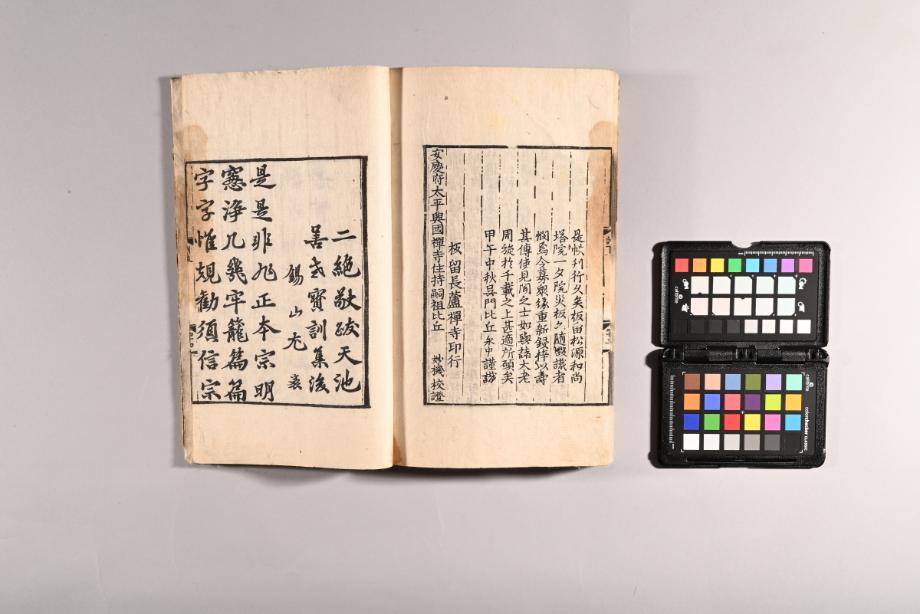 是帙刊行久矣板留松源和尚
塔院一夕院災板亦随燬識者
憫焉今募衆緣重新鋟梓以壽
其傳俾見聞之士如與諸大老
周旋於千載之上甚適所願矣
甲午中秋吳門比丘永中謹誌
板留長蘆禪寺印行
安慶府太平興國禪寺住持嗣祖比丘 妙機校證
二絕敬跋天池
善老寶訓集後
錫山尤 袤
是是非非正本宗明
窓淨几幾牢籠篇篇
字字惟規勸須信宗
colorchecker CLASSIC